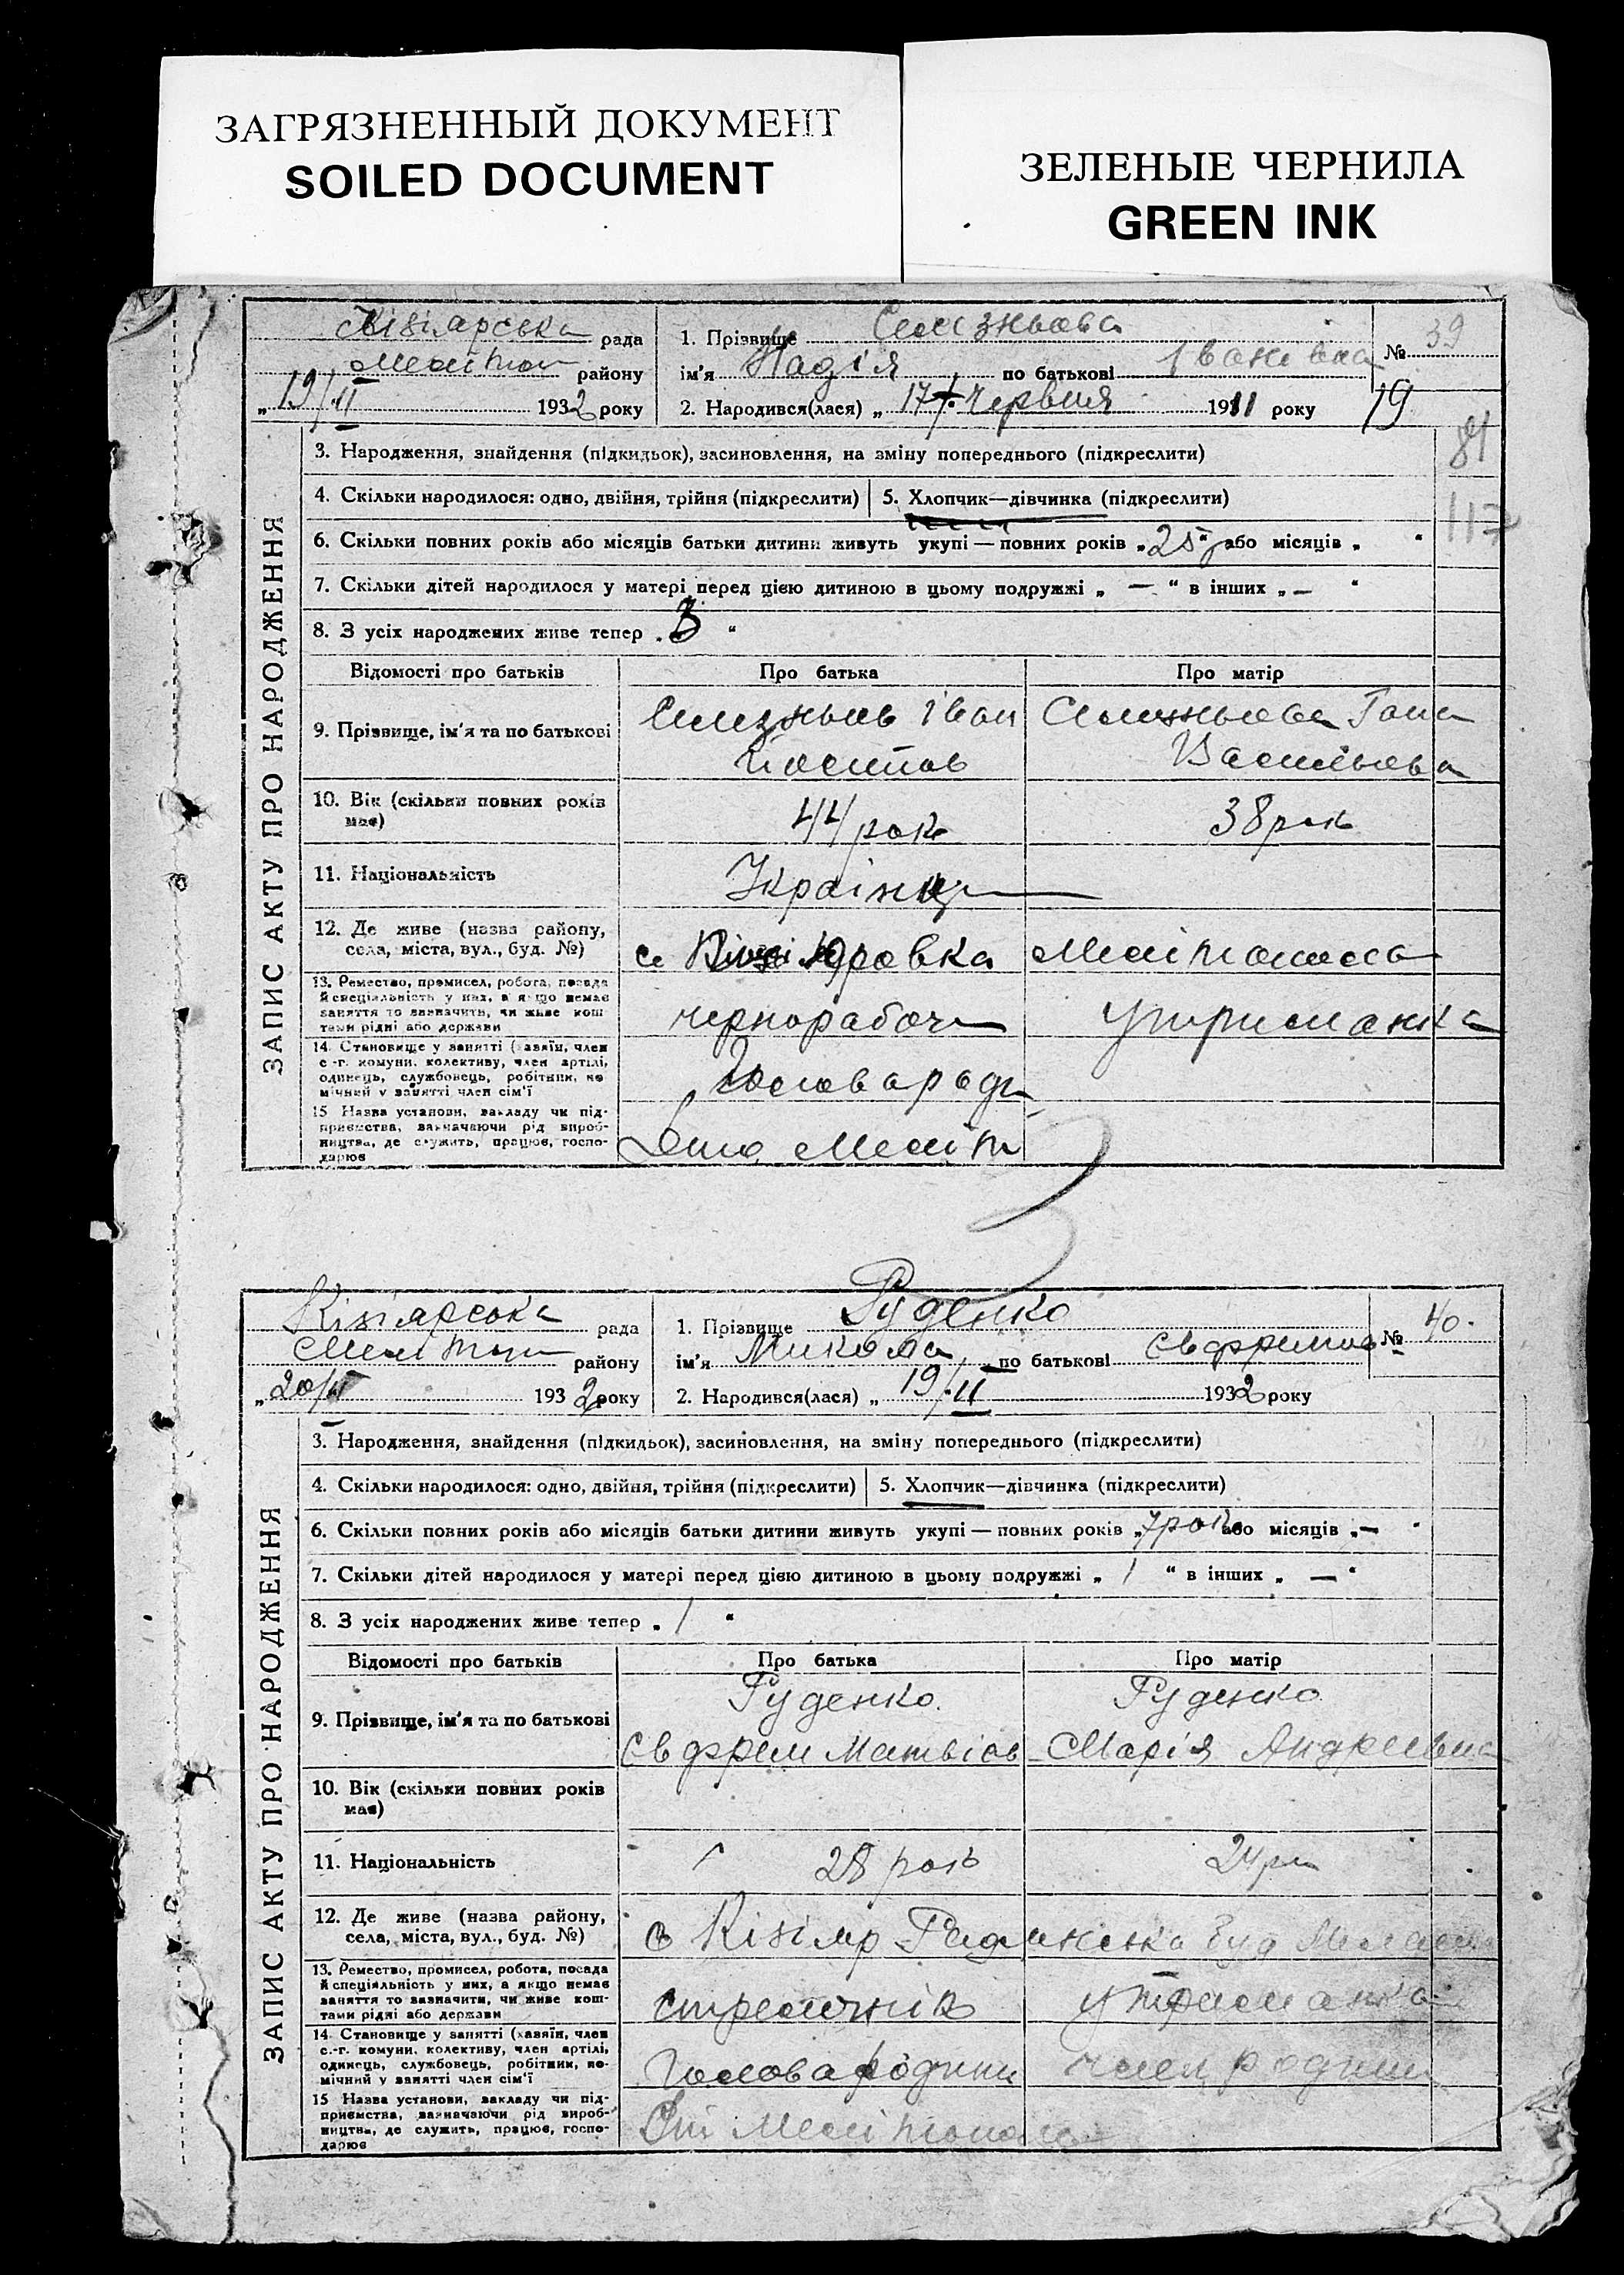 ЗАГРЯЗНЕННЫЙ ДОКУМЕНТ
SOILED DOCUMENT
ЗЕЛЕНЫЕ ЧЕРНИЛА
GREEN INK
ЗАПИС АКТУ ПРО НАРОДЖЕННЯ
Кізіярська рада
району
„19/II 1932 року
1. Прізвище
ім'я Надія по батькові Івановна
№ 39
2. Народився(лася) „17 Червня 1911 року
19
81
117
3. Народження, знайдення (підкидьок), засиновлення, на зміну попереднього (підкреслити)
4. Скільки народилося: одно, двійня, трійня (підкреслити) 5. Хлопчик—дівчинка (підкреслити)
6. Скільки повних років або місяців батьки дитини живуть укупі — повних років „25 або місяців „ “
7. Скільки дітей народилося у матері перед цією дитиною в цьому подружжі „ — “ в інших „ — “
8. З усіх народжених живе тепер „3 “
Відомості про батьків Про батька Про матір
9. Прізвище, ім'я та по батькові
Іван
10. Вік (скільки повних років має) 44 рок 38 рок
11. Національність
12. Де живе (назва району, села, міста, вул., буд. №)
13. Ремество, промисел, робота, посада й спеціяльність у них, а якщо немає заняття то зазначити, чи живе коштами рідні або держави
чернорабочи утриманка
14. Становище у занятті (хазяїн, член с.-г. комуни, колективу, член артілі, одинець, службовець, робітник, помічний у занятті член сім'ї
Голова роди
15 Назва установи, закладу чи підприємства, зазначаючи рід виробництва, де служить, працює, господарює
ЗАПИС АКТУ ПРО НАРОДЖЕННЯ
Кізіярська рада
району
„20/II 1932 року
1. Прізвище Руденко
ім'я Микола по батькові Євфремов
№ 40.
2. Народився(лася) „ 19/II 1932 року
3. Народження, знайдення (підкидьок), засиновлення, на зміну попереднього (підкреслити)
4. Скільки народилося: одно, двійня, трійня (підкреслити) 5. Хлопчик—дівчинка (підкреслити)
6. Скільки повних років або місяців батьки дитини живуть укупі — повних років „7 рок або місяців „— “
7. Скільки дітей народилося у матері перед цією дитиною в цьому подружжі „ 1 “ в інших „ — “
8. З усіх народжених живе тепер „ 1 “
Відомості про батьків Про батька Про матір
9. Прізвище, ім'я та по батькові
Руденко Руденко
Євфрем Матвіов Марія Андреевна
10. Вік (скільки повних років має)
11. Національність 28 рок 24 рок
12. Де живе (назва району, села, міста, вул., буд. №)
с Кізіяр
13. Ремество, промисел, робота, посада й спеціяльність у них, а якщо немає заняття то зазначити, чи живе коштами рідні або держави
стрелочнік утриманка
14. Становище у занятті (хазяїн, член с.-г. комуни, колективу, член артілі, одинець, службовець, робітник, помічний у занятті член сім'ї
Голова родини член родини
15 Назва установи, закладу чи підприємства, зазначаючи рід виробництва, де служить, працює, господарює